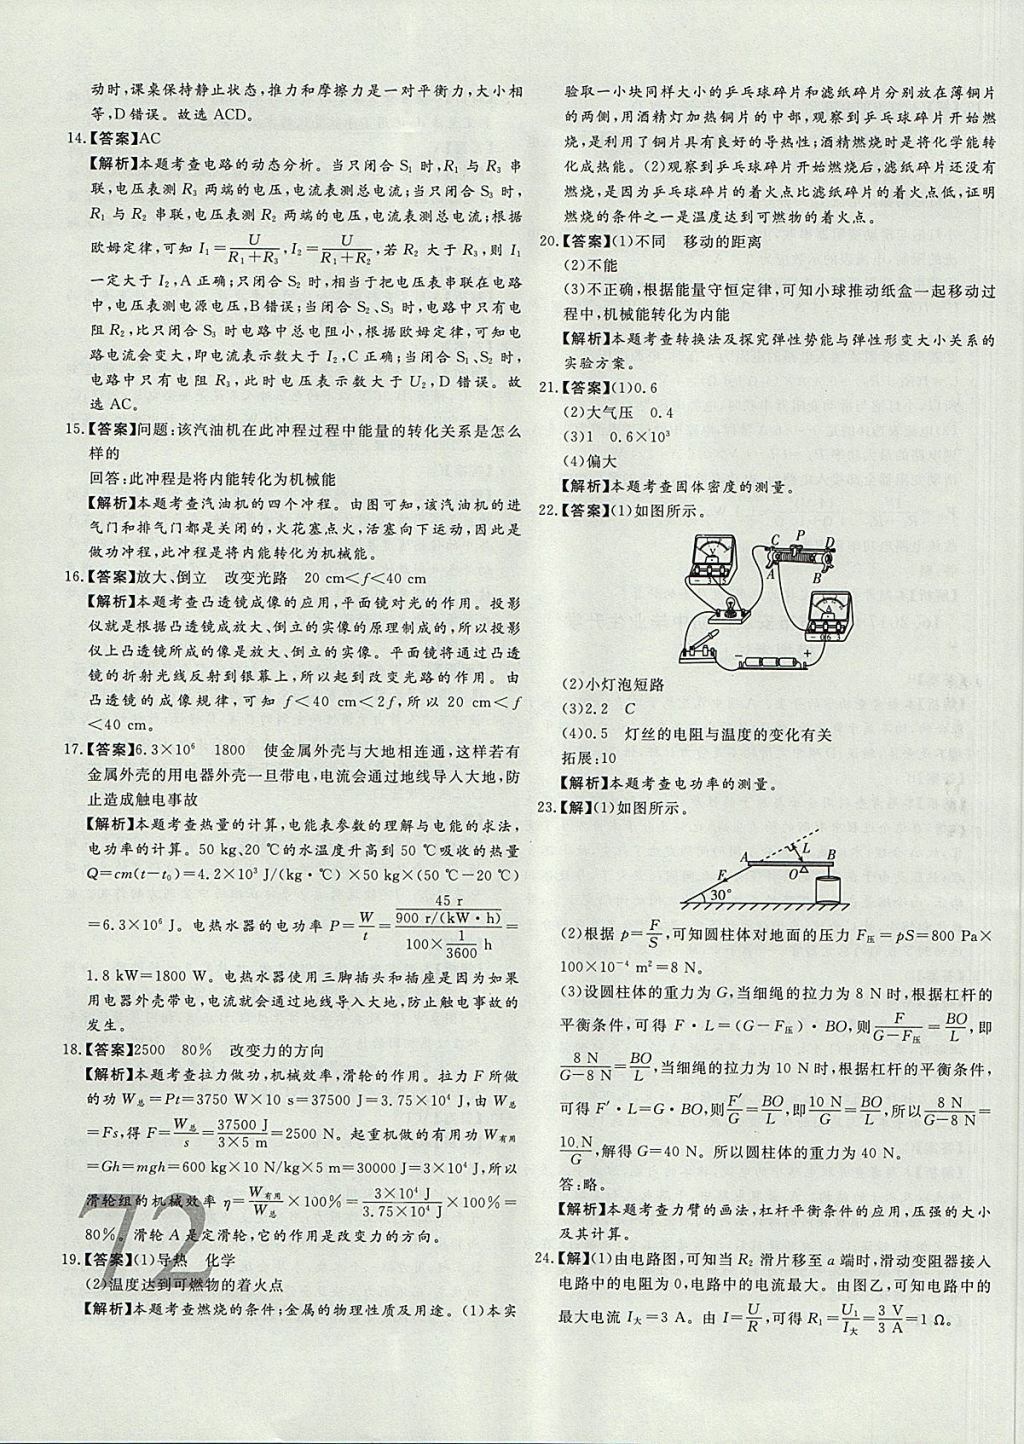 动时,课桌保持静止状态,推力和摩擦力是一对平衡力,大小相
等,D错误。故选 ACD。
14.【答案】AC
【解析】本题考查电路的动态分析。当只闭合 S₁ 时,R₁ 与 R₃ 串
联,电压表测 R₃ 两端的电压,电流表测总电流;当只闭合 S₃ 时,
R₁ 与 R₂ 串联,电压表测 R₂ 两端的电压,电流表测总电流;根据
欧姆定律,可知 I₁=U/(R₁+R₃),I₂=U/(R₁+R₂),若 R₂ 大于 R₃,则 I₁
一定大于 I₂,A 正确;只闭合 S₂ 时,相当于把电压表串联在电路
中,电压表测电源电压,B错误;当闭合 S₂、S₃ 时,电路中只有电
阻 R₂,比只闭合 S₃ 时电路中总电阻小,根据欧姆定律,可知电
路电流会变大,即电流表示数大于 I₂,C 正确;当闭合 S₁、S₂ 时,
电路中只有电阻 R₃,此时电压表示数大于 U₂,D 错误。故
选 AC。
15.【答案】问题:该汽油机在此冲程过程中能量的转化关系是怎么
样的
回答:此冲程是将内能转化为机械能
【解析】本题考查汽油机的四个冲程。由图可知,该汽油机的进
气门和排气门都是关闭的,火花塞点火,活塞向下运动,因此是
做功冲程,此冲程是将内能转化为机械能。
16.【答案】放大、倒立 改变光路 20 cm<f<40 cm
【解析】本题考查凸透镜成像的应用,平面镜对光的作用。投影
仪就是根据凸透镜成放大、倒立的实像的原理制成的,所以投影
仪上凸透镜所成的像是放大、倒立的实像。平面镜将通过凸透
镜的折射光线反射到银幕上,所以起到改变光路的作用。由
凸透镜的成像规律,可知 f<40 cm<2f,所以 20 cm<f
<40 cm。
17.【答案】6.3×10⁶ 1800 使金属外壳与大地相连通,这样若有
金属外壳的用电器外壳一旦带电,电流会通过地线导入大地,防
止造成触电事故
【解析】本题考查热量的计算,电能表参数的理解与电能的求法,
电功率的计算。50 kg、20 ℃的水温度升高到 50 ℃吸收的热量
Q=cm(t-t₀)=4.2×10³ J/(kg·℃)×50 kg×(50 ℃-20 ℃)
=6.3×10⁶ J。电热水器的电功率 P=W/t=(45 r/(900 r/(kW·h)))/(100×1/3600 h)=
1.8 kW=1800 W。电热水器使用三脚插头和插座是因为如果
用电器外壳带电,电流就会通过地线导入大地,防止触电事故的
发生。
18.【答案】2500 80% 改变力的方向
【解析】本题考查拉力做功,机械效率,滑轮的作用。拉力 F 所做
的功 W总=Pt=3750 W×10 s=37500 J=3.75×10⁴ J,由 W总
=Fs,得 F=W总/s=37500 J/(3×5 m)=2500 N。起重机做的有用功 W有用
=Gh=mgh=600 kg×10 N/kg×5 m=30000 J=3×10⁴ J,所以
滑轮组的机械效率 η=W有用/W总×100%=(3×10⁴ J)/(3.75×10⁴ J)×100%=
80%。滑轮 A 是定滑轮,它的作用是改变力的方向。
19.【答案】(1)导热 化学
(2)温度达到可燃物的着火点
【解析】本题考查燃烧的条件;金属的物理性质及用途。(1)本实
72
验取一小块同样大小的乒乓球碎片和滤纸碎片分别放在薄铜片
的两侧,用酒精灯加热铜片的中部,观察到乒乓球碎片开始燃
烧,是利用了铜片具有良好的导热性;酒精燃烧时是将化学能转
化成热能。(2)观察到乒乓球碎片开始燃烧后,滤纸碎片还没有
燃烧,是因为乒乓球碎片的着火点比滤纸碎片的着火点低,证明
燃烧的条件之一是温度达到可燃物的着火点。
20.【答案】(1)不同 移动的距离
(2)不能
(3)不正确,根据能量守恒定律,可知小球推动纸盒一起移动过
程中,机械能转化为内能
【解析】本题考查转换法及探究弹性势能与弹性形变大小关系的
实验方案。
21.【答案】(1)0.6
(2)大气压 0.4
(3)1 0.6×10³
(4)偏大
【解析】本题考查固体密度的测量。
22.【答案】(1)如图所示。
V
- 3 15
C P D
A B
A
- 0.6 3
- +
(2)小灯泡短路
(3)2.2 C
(4)0.5 灯丝的电阻与温度的变化有关
拓展:10
【解析】本题考查电功率的测量。
23.【解】(1)如图所示。
A L B
O
F
30°
(2)根据 p=F/S,可知圆柱体对地面的压力 F压=pS=800 Pa×
100×10⁻⁴ m²=8 N。
(3)设圆柱体的重力为 G,当细绳的拉力为 8 N 时,根据杠杆的
平衡条件,可得 F·L=(G-F压)·BO,则F/(G-F压)=BO/L,即
8 N/(G-8 N)=BO/L,当细绳的拉力为 10 N 时,根据杠杆的平衡条件,
可得 F′·L=G·BO,则F′/G=BO/L,即10 N/G=BO/L,所以8 N/(G-8 N)=
10 N/G,解得 G=40 N。所以圆柱体的重力为 40 N。
答:略。
【解析】本题考查力臂的画法,杠杆平衡条件的应用,压强的大小
及其计算。
24.【解】(1)由电路图,可知当 R₂ 滑片移至 a 端时,滑动变阻器接入
电路中的电阻为 0,电路中的电流最大。由图乙,可知电路中的
最大电流 I大=3 A。由 I=U/R,可得 R₁=U₁/I大=3 V/3 A=1 Ω。